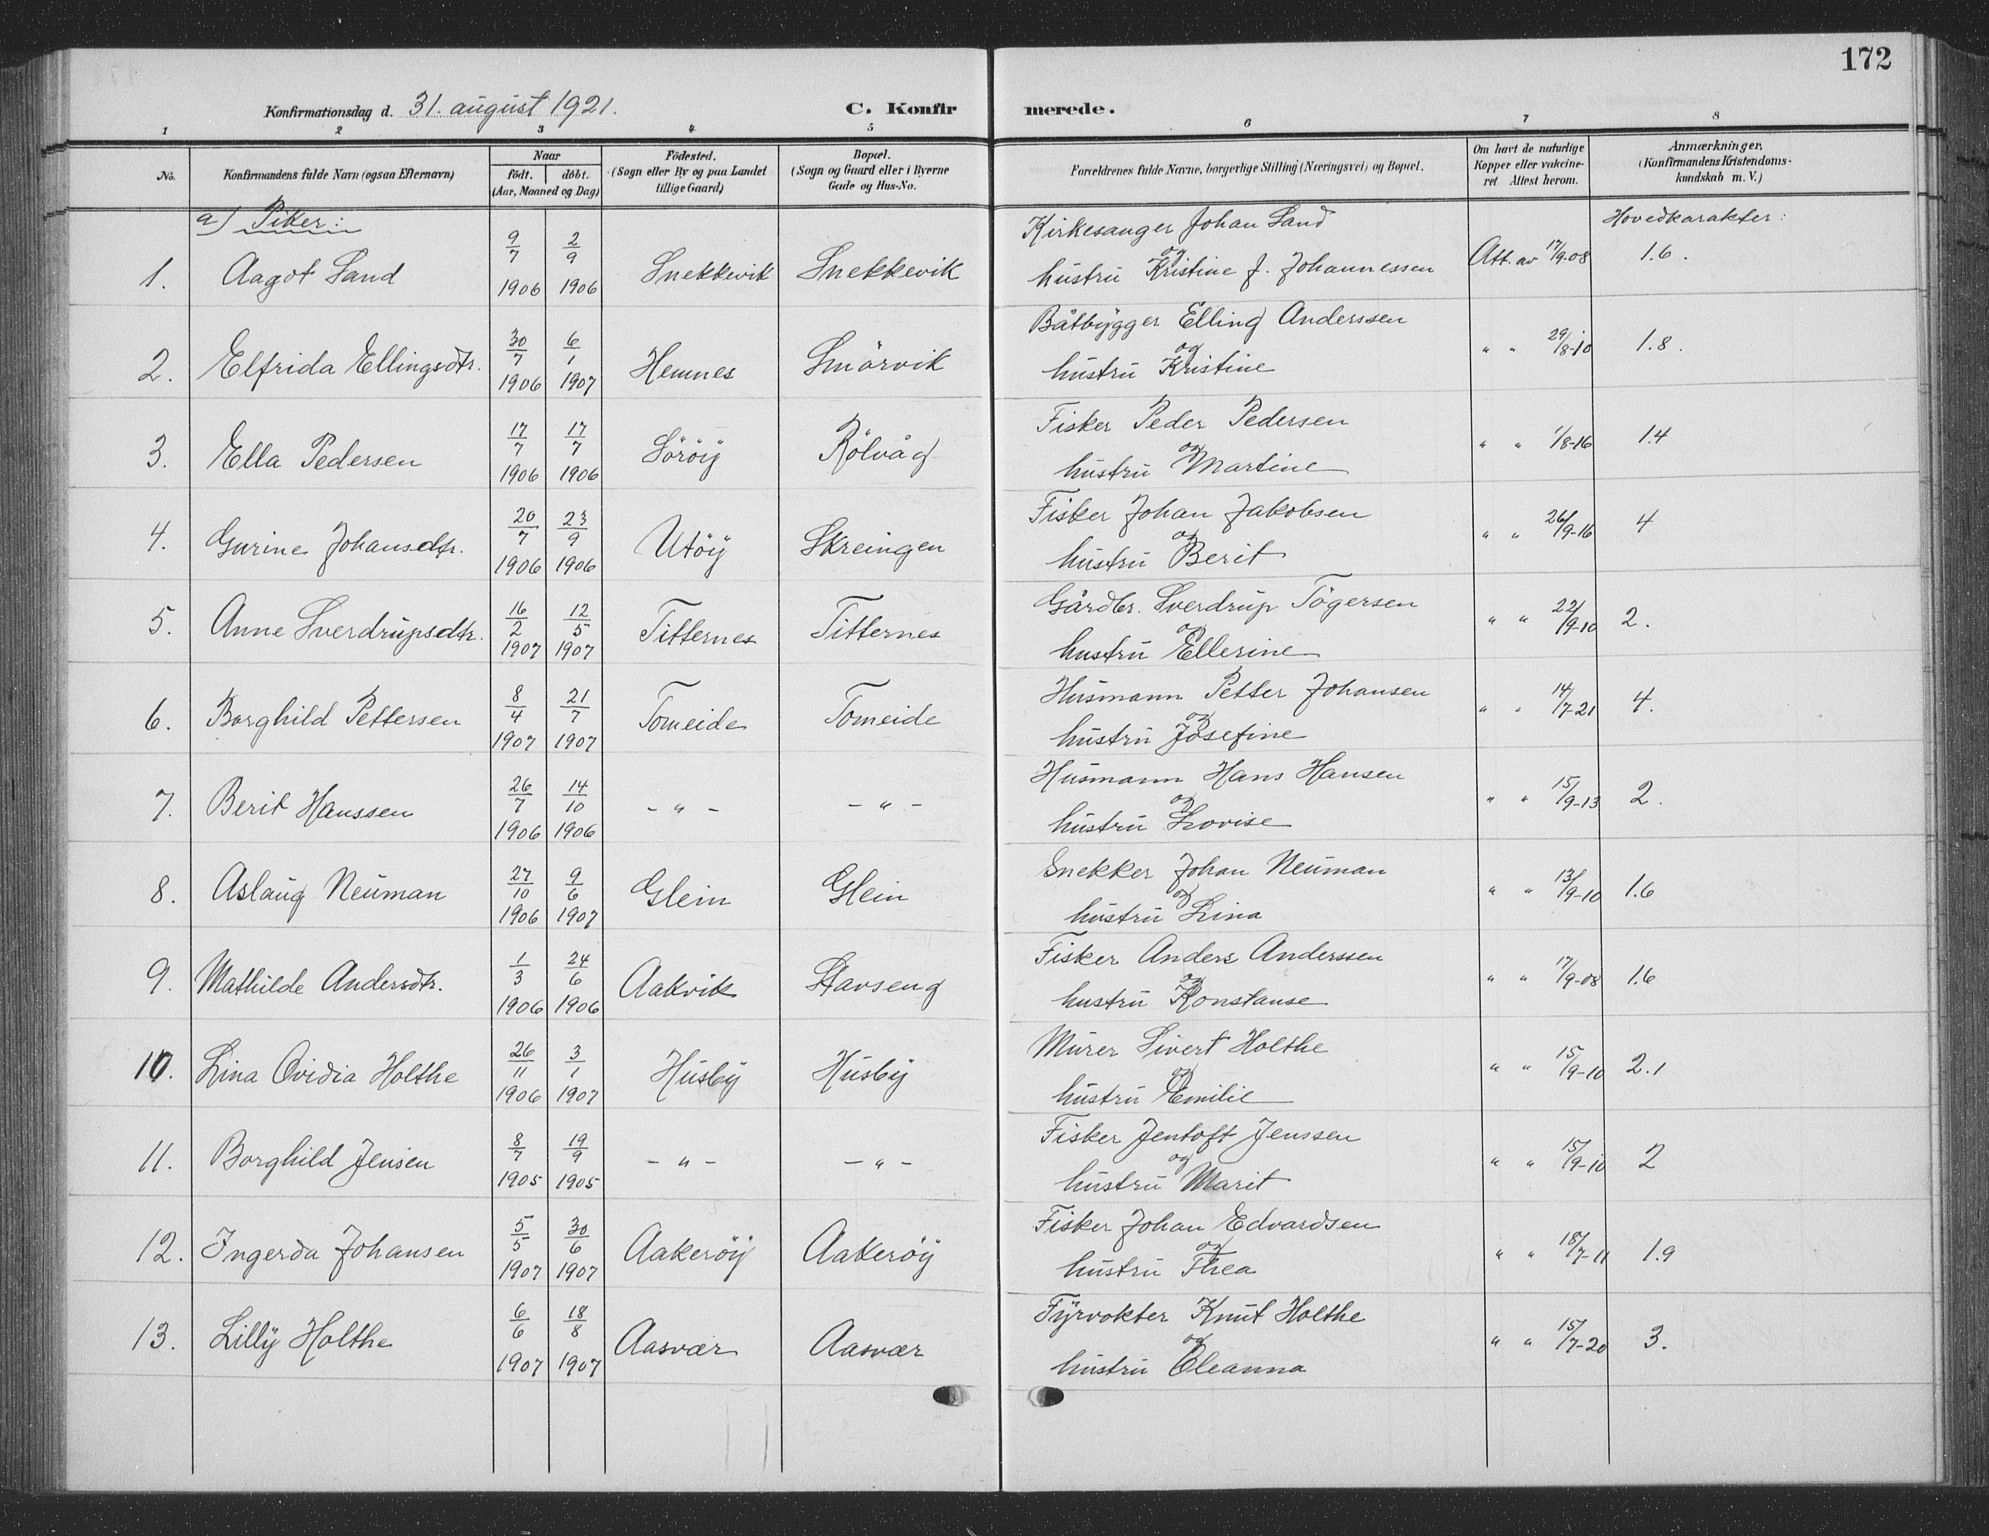 172
Konfirmationsdag d. 31. august 1921. C. Konfir merede.
1 2 3 4 5 6 7 8
No. Konfirmandens fulde Navn (ogsaa Efternavn) Naar født. døbt. (Aar, Maaned og Dag) Fødested. (Sogn eller By og paa Landet tillige Gaard) Bopæl. (Sogn og Gaard eller i Byerne Gade og Hus-No. Forældrenes fulde Navne, borgerlige Stilling (Næringsvei) og Bopæl. Om havt de naturlige Kopper eller vakcineret Attest herom. Anmærkninger, (Konfirmandens Kristendomskundskab m. V.)
a) Piker: Hovedkarakter:
1. Aagot Sand 9/7 1906 2/9 1906 Snekkevik Snekkevik Kirkesanger Johan Sand og hustru Kristine J. Johannessen Att. av 17/9-08 1.6.
2. Elfrida Ellingsdtr. 30/7 1906 6/1 1907 Hemnes Smörvik Båtbygger Elling Anderssen og hustru Kristine " " 29/8-10 1.8.
3. Ella Pedersen 17/7 1906 17/7 1906 Söröy Rölvåg Fisker Peder Pedersen og hustru Martine " " 1/8-16 1.4
4. Gurine Johansdtr. 20/7 1906 23/9 1906 Utöy Skreingen Fisker Johan Jakobsen og hustru Berit " " 26/9-16 4
5. Anne Sverdrupsdtr. 16/2 1907 12/5 1907 Titternes Titternes Gårdbr. Sverdrup Tögersen og hustru Ellerine " " 22/9-10 2.
6. Borghild Pettersen 8/4 1907 21/7 1907 Tomeide Tomeide Husmann Petter Johansen og hustru Josefine " " 14/7-21 4.
7. Berit Hanssen 26/7 1906 14/10 1906 - " - - " - Husmann Hans Hansen og hustru Lovise " " 15/9-13 2.
8. Aslaug Neuman 27/10 1906 9/6 1907 Glein Glein Snekker Johan Neuman og hustru Lina " " 13/9-10 1.6
9. Mathilde Andersdtr. 1/3 1906 24/6 1906 Aakvik Stavseng Fisker Anders Anderssen og hustru Konstanse " " 17/9-08 1.6
10. Lina Ovidia Holthe 26/11 1906 3/1 1907 Husby Husby Murer Sivert Holthe og hustru Emilie " " 15/9-10 2.1
11. Borghild Jensen 8/7 1905 19/9 1905 - " - - " - Fisker Jentoft Jenssen og hustru Marit " " 15/9-10 2
12. Ingerda Johansen 5/5 1907 30/6 1907 Aakeröy Aakeröy Fisker Johan Edvardsen og hustru Thea " " 18/7-11 1.9
13. Lilly Holthe 6/6 1907 18/8 1907 Aasvær Aasvær Fyrvokter Knut Holthe og hustru Oleanna " " 15/7-20 3.